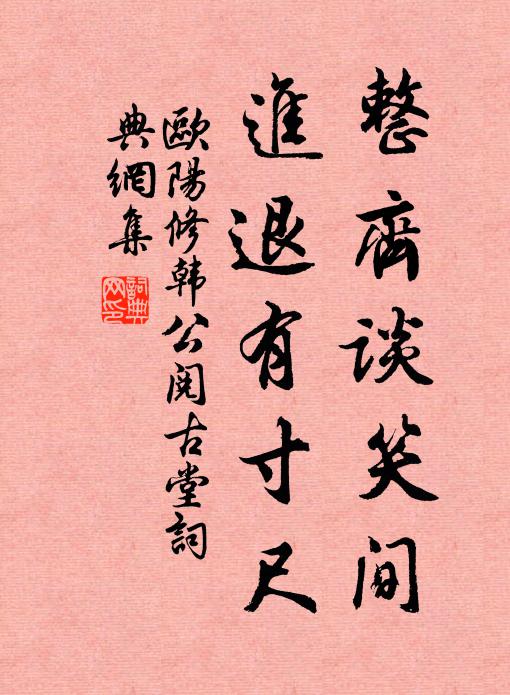 整齊談笑间
進退有寸尺
歐陽修韩公阅古堂詞
典網集
詞典
网印